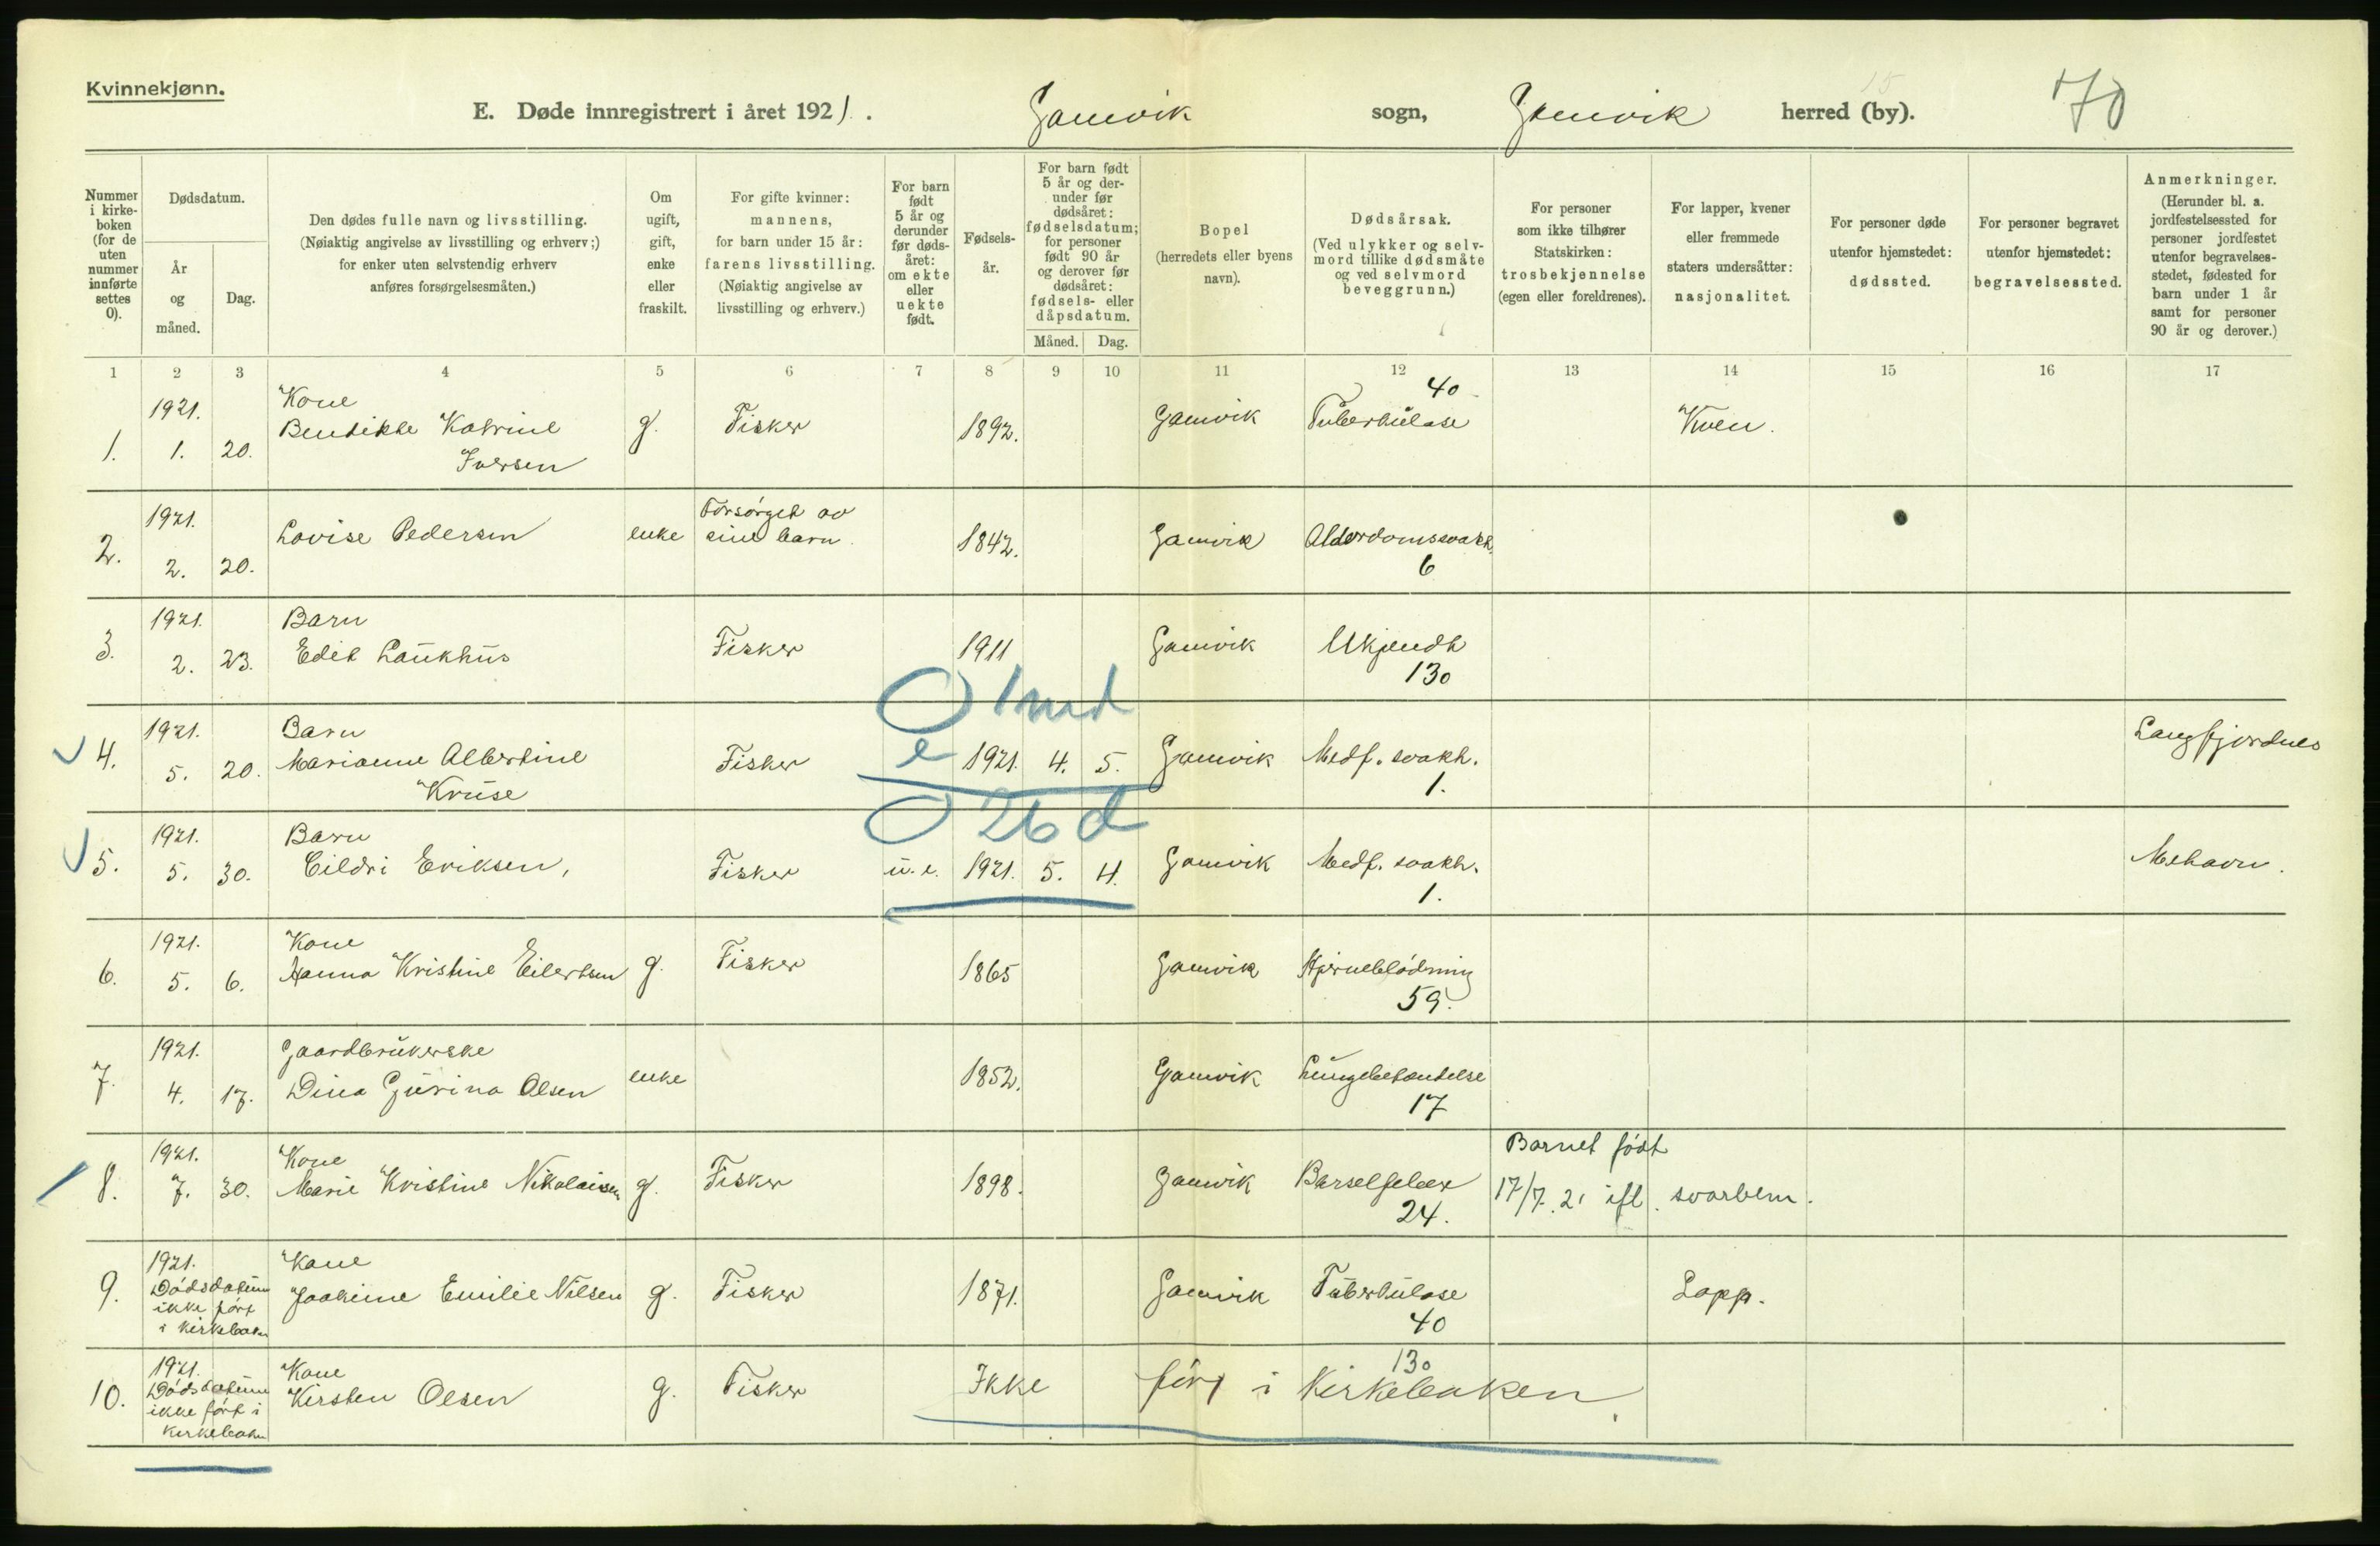 Kvinnekjønn.
E. Døde innregistrert i året 1921. Gamvik sogn, Gamvik herred (by). 70
15
Nummer i kirkeboken (for de uten nummer innførte settes 0).
Dødsdatum.
År og måned.
Dag.
Den dødes fulle navn og livsstilling. (Nøiaktig angivelse av livsstilling og erhverv;) for enker uten selvstendig erhverv anføres forsørgelsesmåten.)
Om ugift, gift, enke eller fraskilt.
For gifte kvinner: mannens, for barn under 15 år: farens livsstilling. (Nøiaktig angivelse av livsstilling og erhverv.)
For barn født 5 år og derunder før dødsåret: om ekte eller uekte født.
Fødselsår.
For barn født 5 år og derunder før dødsåret: fødselsdatum; for personer født 90 år og derover før dødsåret: fødsels- eller dåpsdatum.
Måned. Dag.
Bopel (herredets eller byens navn).
Dødsårsak. (Ved ulykker og selvmord tillike dødsmåte og ved selvmord beveggrunn.)
For personer som ikke tilhører Statskirken: trosbekjennelse (egen eller foreldrenes).
For lapper, kvener eller fremmede staters undersåtter: nasjonalitet.
For personer døde utenfor hjemstedet: dødssted.
For personer begravet utenfor hjemstedet: begravelsessted.
Anmerkninger. (Herunder bl. a. jordfestelsessted for personer jordfestet utenfor begravelsesstedet, fødested for barn under 1 år samt for personer 90 år og derover.)
1 2 3 4 5 6 7 8 9 10 11 12 13 14 15 16 17
1. 1921. 1. 20. Kone Bendikte Katrine Iversen g. Fisker 1892. Gamvik Tuberkulose 40 Kven.
2. 1921. 2. 20. Lovise Pedersen enke Forsørget av sine barn. 1842. Gamvik Alderdomssvakh. 6
3. 1921. 2. 23. Barn Edit Laukhus Fisker 1911 Gamvik Ukjendt 130
0 1 md
4. 1921. 5. 20. Barn Marianne Albertine Kruse Fisker e 1921. 4. 5. Gamvik Medf. svakh. 1. Langfjordnes
0 26 d
5. 1921. 5. 30. Barn Eriksen, Fisker u. e. 1921. 5. 4. Gamvik Medf. svakh. 1. Mehavn.
6. 1921. 5. 6. Kone Hanna Kristine Eilertsen g. Fisker 1865 Gamvik Hjerneblødning 59.
7. 1921. 4. 17. Gaardbrukerske Dina Gurina Olsen enke 1852. Gamvik Lungebetændelse 17
8. 1921. 7. 30. Kone Marie Kristine Nikolaisen g. Fisker 1898. Gamvik Barselfeber 24. Barnet født 17/7.21 ifl. svarbem.
9. 1921. Dødsdatum ikke ført i kirkeboken Kone Joakime Emilie Nilsen g. Fisker 1871. Gamvik Tuberkulose 40 Lapp.
10. 1921. Dødsdatum ikke ført i kirkeboken Kone Kirsten Olsen g. Fisker Ikke ført i Kirkeboken. 130